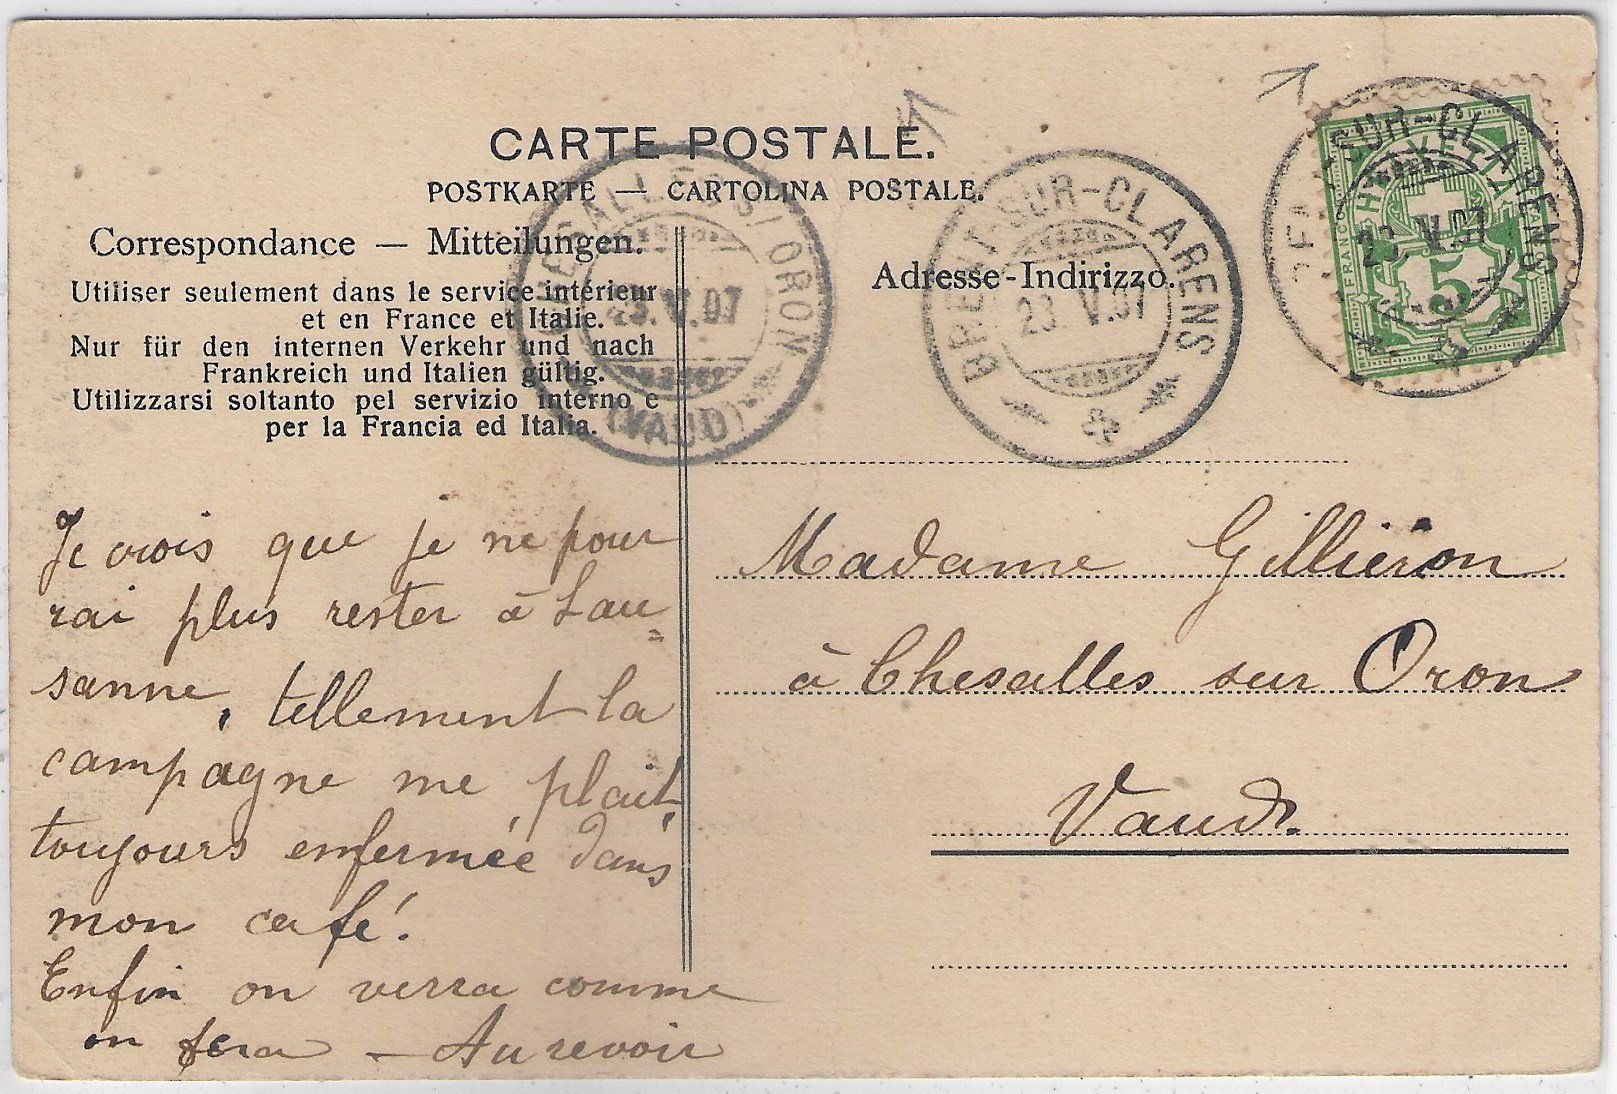 CARTE POSTALE.
POSTKARTE — CARTOLINA POSTALE.
Correspondance — Mitteilungen.
Utiliser seulement dans le service intérieur
et en France et Italie.
Nur für den internen Verkehr und nach
Frankreich und Italien gültig.
Utilizzarsi soltanto pel servizio interno e
per la Francia ed Italia.
Je crois que je ne pour
rai plus rester à Lau=
sanne, tellement la
campagne me plait,
toujours enfermée dans
mon café!
Enfin on verra comme
on fera — Au revoir
Adresse-Indirizzo.
Madame Gilliéron
à Chesalles sur Oron
Vaud.
CHESALLES S/ORON
23.V.07
(VAUD)
BRENT-SUR-CLARENS
23.V.07
SUR-CLARENS
23.V.07
HELVETIA
FRANCO
5